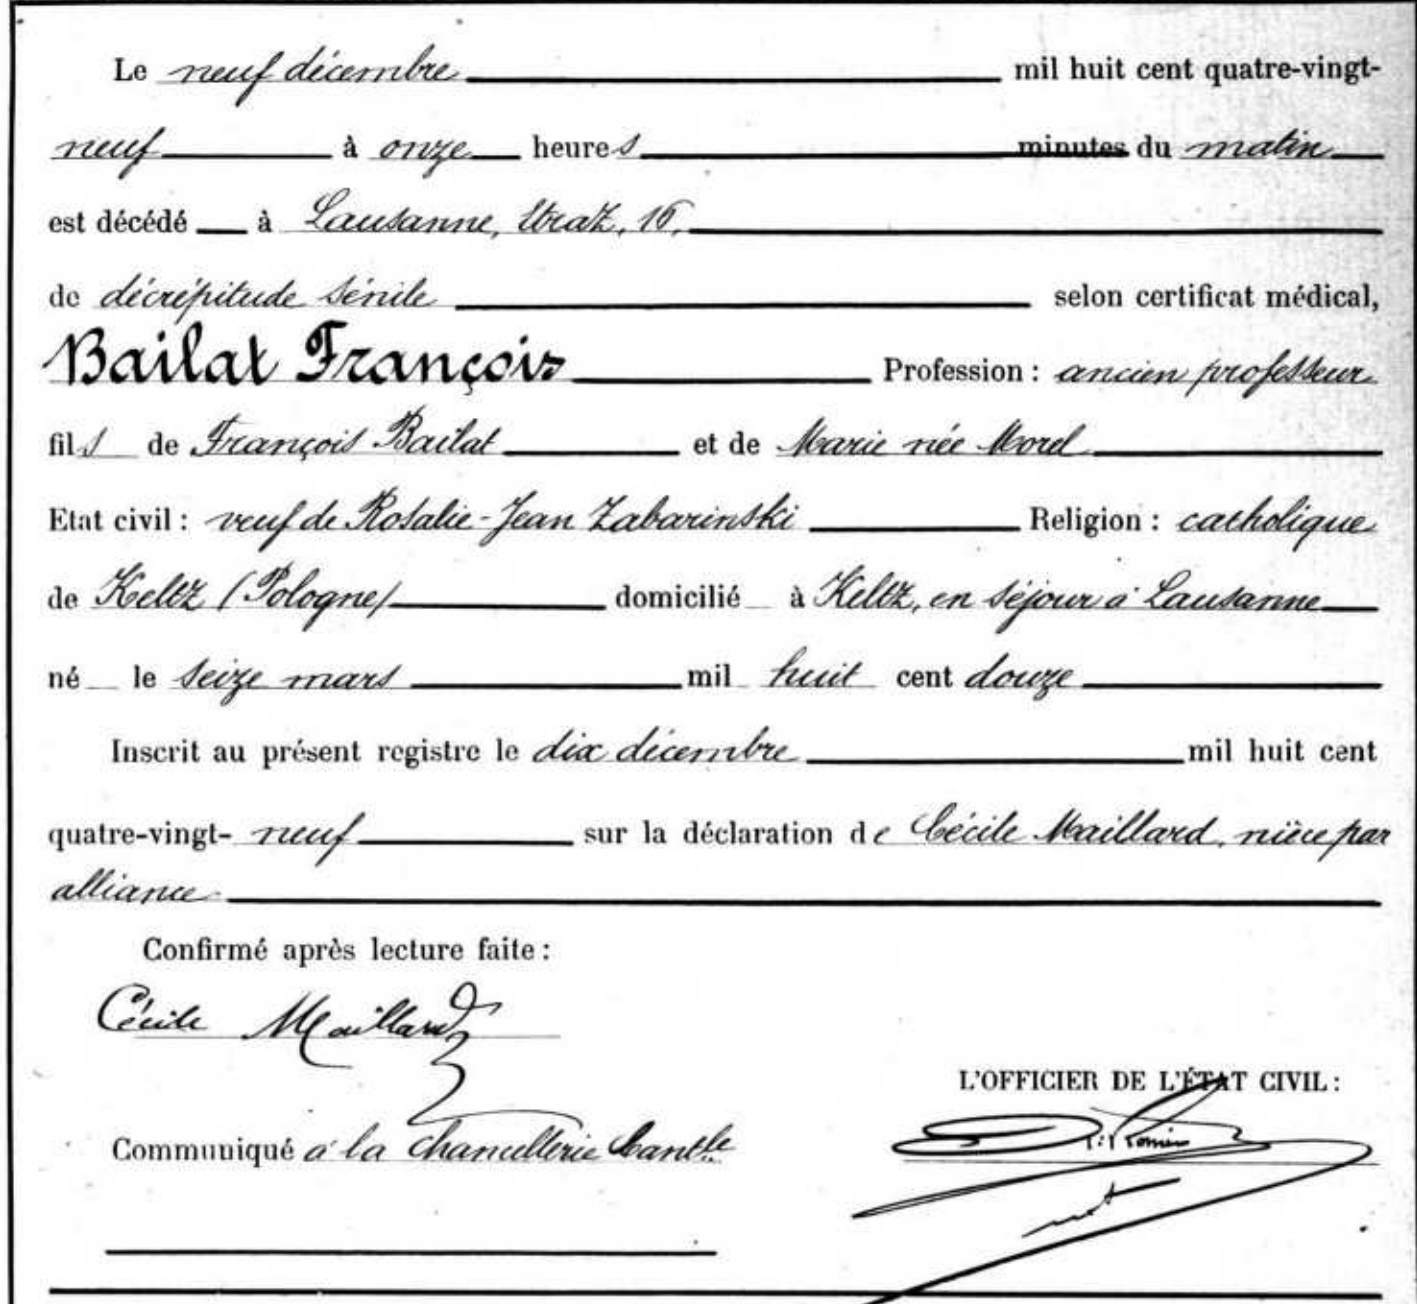 Le neuf décembre mil huit cent quatre-vingt-
neuf à onze heures minutes du matin
est décédé à Lausanne, Etraz, 16,
de décrépitude sénile selon certificat médical,
Bailat François Profession : ancien professeur
fils de François Bailat et de Marie née Morel
Etat civil : veuf de Rosalie-Jean Zabarinski Religion : catholique
de Keltz (Pologne) domicilié à Keltz, en séjour à Lausanne
né le seize mars mil huit cent douze
Inscrit au présent registre le dix décembre mil huit cent
quatre-vingt- neuf sur la déclaration de Cécile Maillard, nièce par
alliance
Confirmé après lecture faite :
Cécile Maillard
L'OFFICIER DE L'ÉTAT CIVIL :
Communiqué à la Chancellerie Cantle